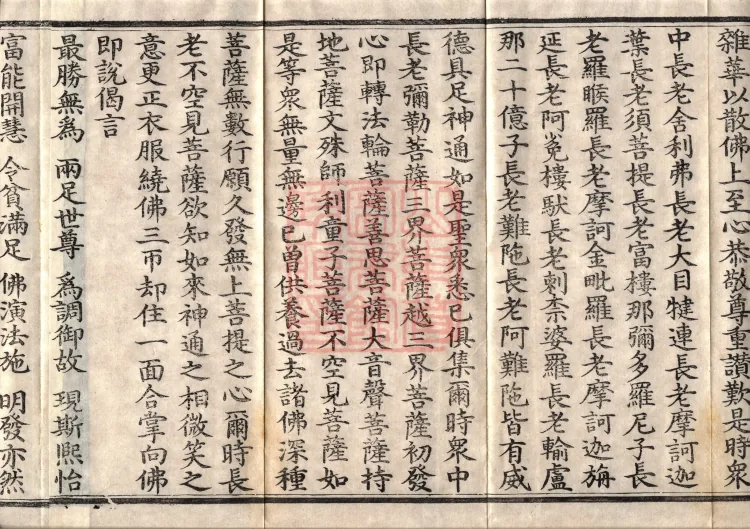 雜華以散佛上至心恭敬尊重讃歎是時衆
中長老舍利弗長老大目犍連長老摩訶迦
葉長老須菩提長老富樓那彌多羅尼子長
老羅睺羅長老摩訶金毗羅長老摩訶迦旃
延長老阿㝹樓馱長老刺柰婆羅長老輸盧
那二十億子長老難陁長老阿難陁皆有威
德具足神通如是聖衆悉已俱集爾時衆中
長老彌勒菩薩三界菩薩越三界菩薩初發
心即轉法輪菩薩善思菩薩大音聲菩薩持
地菩薩文殊師利童子菩薩不空見菩薩如
是等衆無量無邊已曾供養過去諸佛深種
菩薩無數行願久發無上菩提之心爾時長
老不空見菩薩欲知如來神通之相微笑之
意更正衣服繞佛三帀却住一面合掌向佛
即說偈言
最勝無爲 兩足世尊 爲調御故 現斯熙怡
富能開慧 令貧滿足 佛演法施 明發亦然